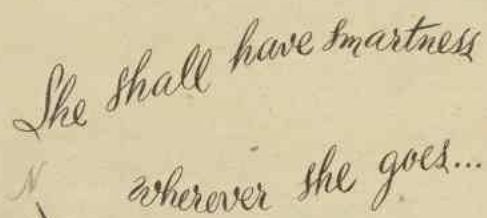 She shall have smartness
wherever she goes...
N